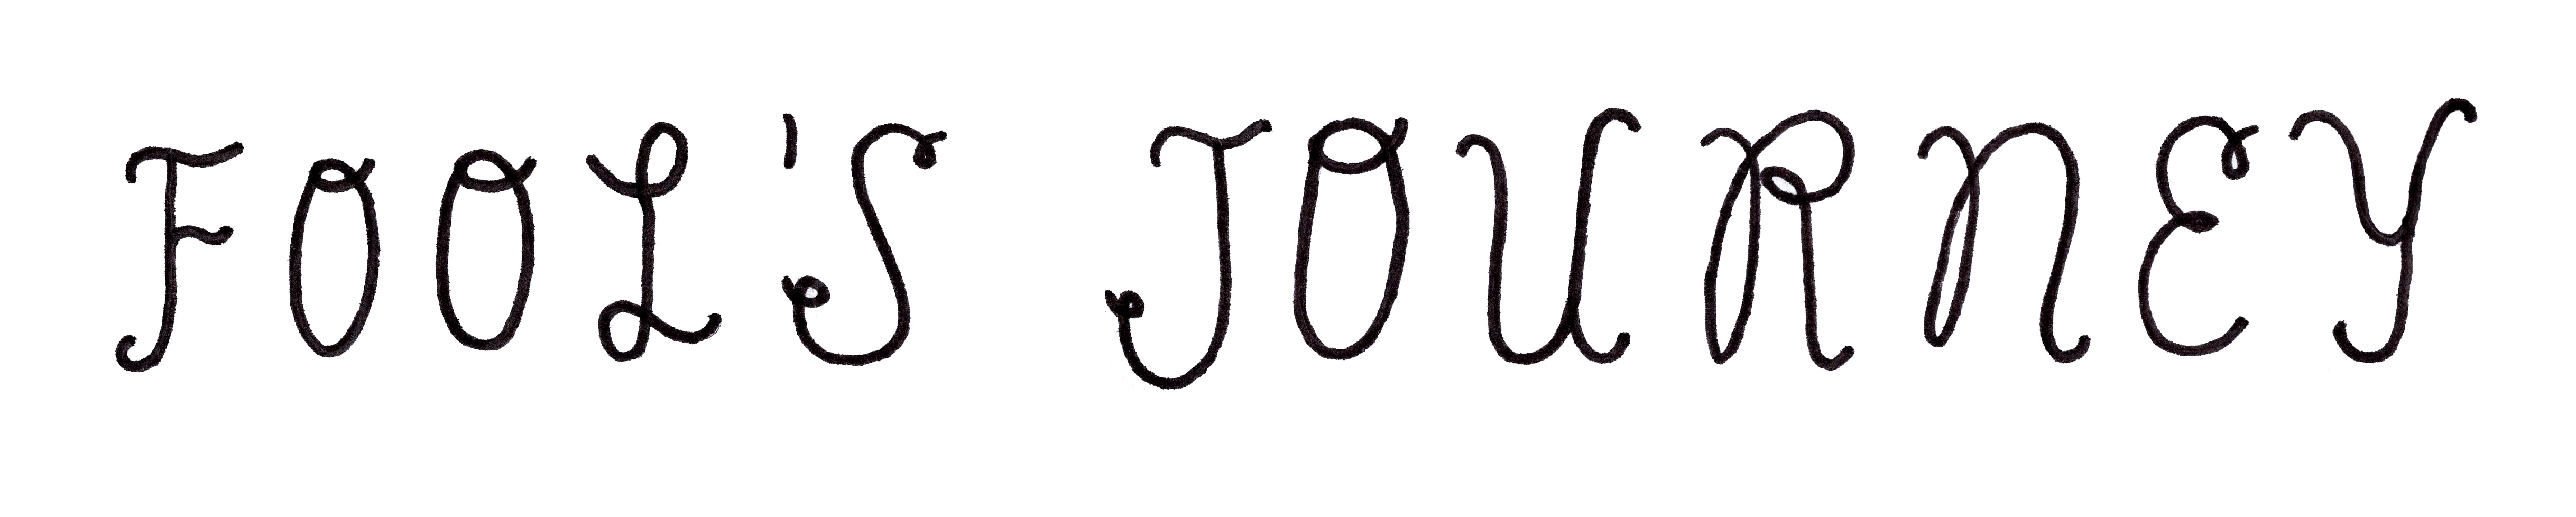 FOOL'S JOURNEY